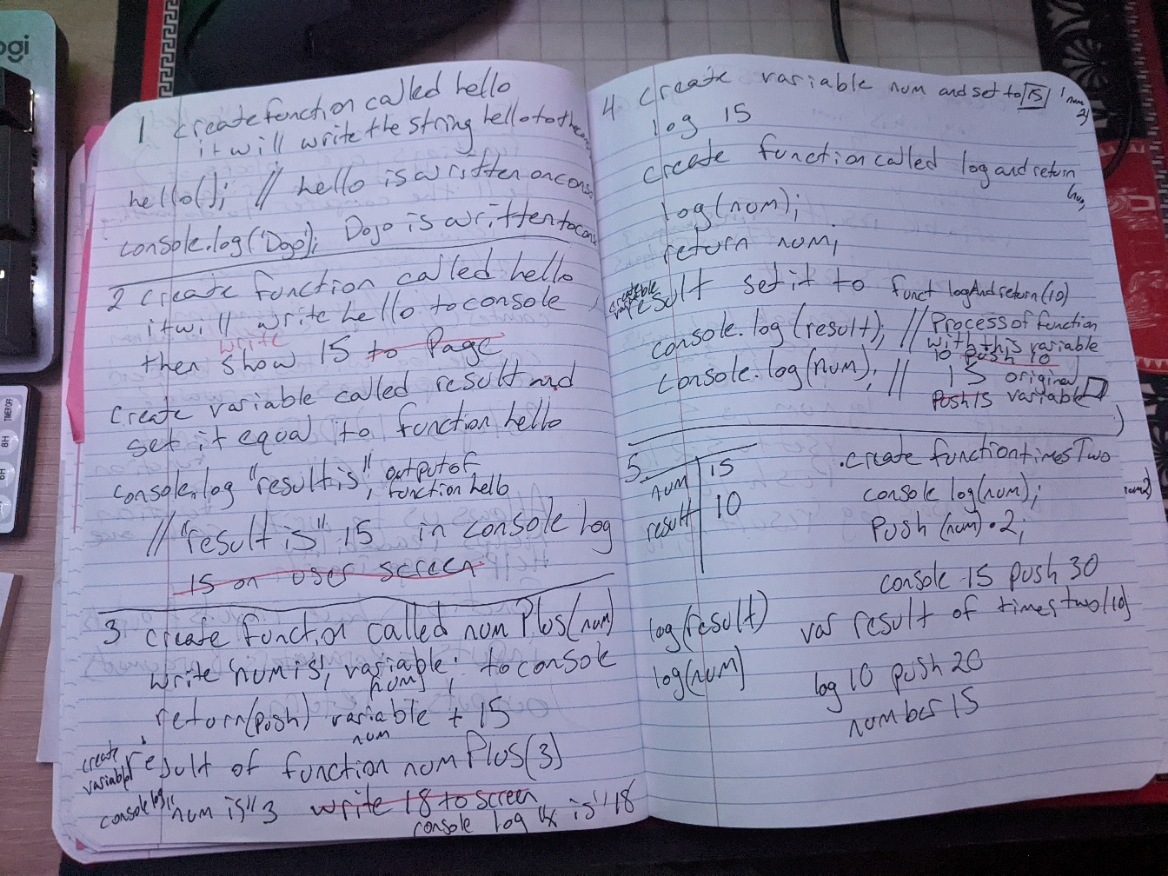 ogi
1 create function called hello
it will write the string hello to the
hello(); // hello is written on cons
console.log('Dojo'); Dojo is written to cons
2 create function called hello
it will write hello to console
write
then show 15 to Page
create variable called result and
set it equal to function hello
console.log "result is", output of
function hello
// "result is" 15 in console log
15 on user screen
3 create function called num Plus(num)
write 'num is', variable; to console
num
return(push) variable + 15
num
create
variable
result of function num Plus(3)
console log "num is" 3 write 18 to screen
console log is" 18
4 create variable num and set to 15
log 15
create function called log and return
(num)
log(num);
return num;
create
result set it to funct logAnd return(10)
console.log(result); // Process of function
with this variable
10 push 10
console.log(num); // 15 original
Push 15 variable
5
num 15
result 10
.create function times Two
console log(num);
Push (num) * 2;
console 15 push 30
log(result) var result of times two(10)
log(num) log 10 push 20
number 15